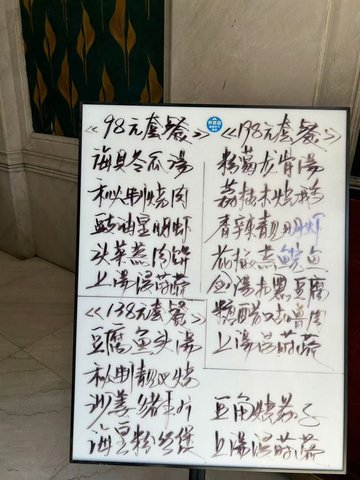 《98元套餐》
海贝冬瓜汤
秘制烧肉
豉油皇明虾
头菜蒸肉饼
上汤浸时蔬
《138元套餐》
豆腐鱼头汤
秘制靓叉烧
沙姜猪
海皇粉丝煲
豆角烧茄子
上汤浸时蔬
《198元套餐》
粉葛龙骨汤
荔枝木烧鹅
香辣靓明虾
蒸鲩鱼
豆腐
糖醋
上汤浸时蔬